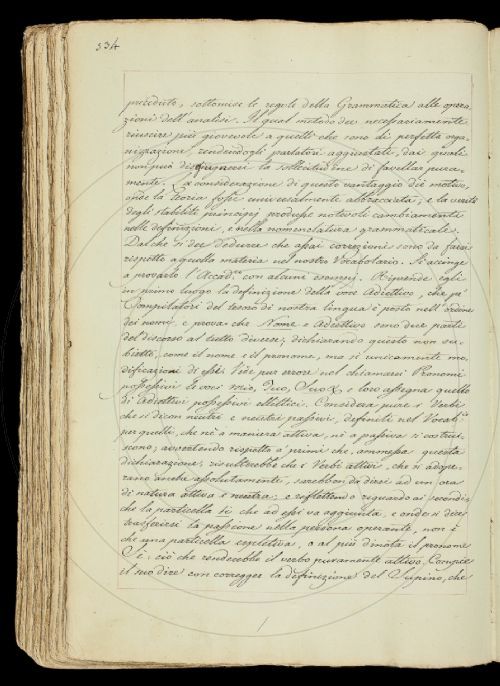 334
preceduto, sottomise le regole della Grammatica alle opera-
zioni dell'analisi. Il qual metodo dee necessariamente
riuscire più giovevole a quelli che sono di perfetta orga-
nizzazione, rendendogli parlatori aggiustati, dai quali
non può disgiugnersi la sollecitudine di favellar pura-
mente. La considerazione di questo vantaggio diè motivo,
onde la teoria fosse universalmente abbracciata; e la verità
degli stabiliti principj produsse notevoli cambiamenti
nelle definizioni, e nella nomenclatura grammaticale.
Dal che si dee dedurre che assai correzioni sono da farsi
rispetto a quella materia nel nostro Vocabolario. Si accinge
a provarlo l'Accad.co con alcuni esempj. Riprende egli
in primo luogo la definizione della voce Adiettivo, che pe'
Compilatori del tesoro di nostra lingua è posto nell'ordine
dei nomi, e prova che Nome e Adiettivo sono due parti
del discorso al tutto diverse; dichiarando questo non su-
bietto, come il nome e il pronome, ma sì unicamente mo-
dificazioni di essi. Vede pur errore nel chiamarsi Pronomi
possessivi le voci mio, Tuo, Suo &, e loro assegna quello
di Adiettivi possessivi ellittici. Considera pure i Verbi
che si dicon neutri e neutri passivi, definiti nel Vocab.io
per quelli, che nè a maniera attiva, nè a passiva si costrui-
scono; avvertendo rispetto a' primi che, ammessa questa
dichiarazione, risulterebbe che i Verbi attivi, che si adope-
rano anche assolutamente, sarebbon da dirsi ad un'ora
di natura attiva e neutra; e riflettendo riguardo ai secondi,
che la particella si che ad essi va aggiunta, e onde si dice
trasferirsi la passione nella persona operante, non è
che una particella espletiva, o al più dinota il pronome
Se, ciò che renderebbe il verbo puramente attivo. Compie
il suo dire con correggere la definizione del Supino, che